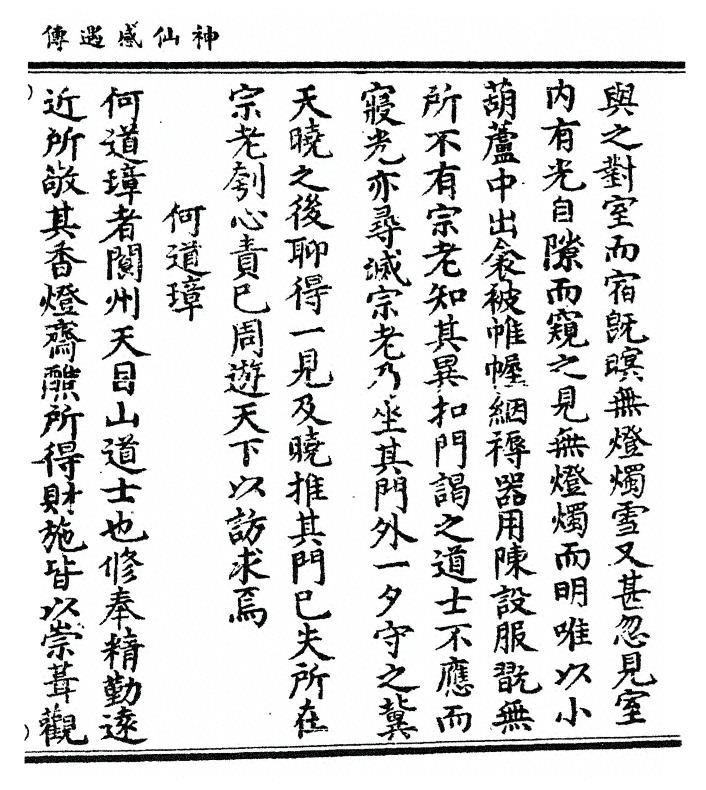 神仙感遇傳
與之對室而宿既暝無燈燭雪又甚忽見室
内有光自隙而窺之見無燈燭而明唯以小
葫蘆中出衾被帷幄絪褥器用陳設服翫無
所不有宗老知其異扣門謁之道士不應而
寢光亦尋滅宗老乃坐其門外一夕守之冀
天曉之後聊得一見及曉推其門已失所在
宗老刳心責已周遊天下以訪求焉
何道璋
何道璋者閬州天目山道士也修奉精勤遠
近所敬其香燈齋醮所得財施皆以崇葺觀